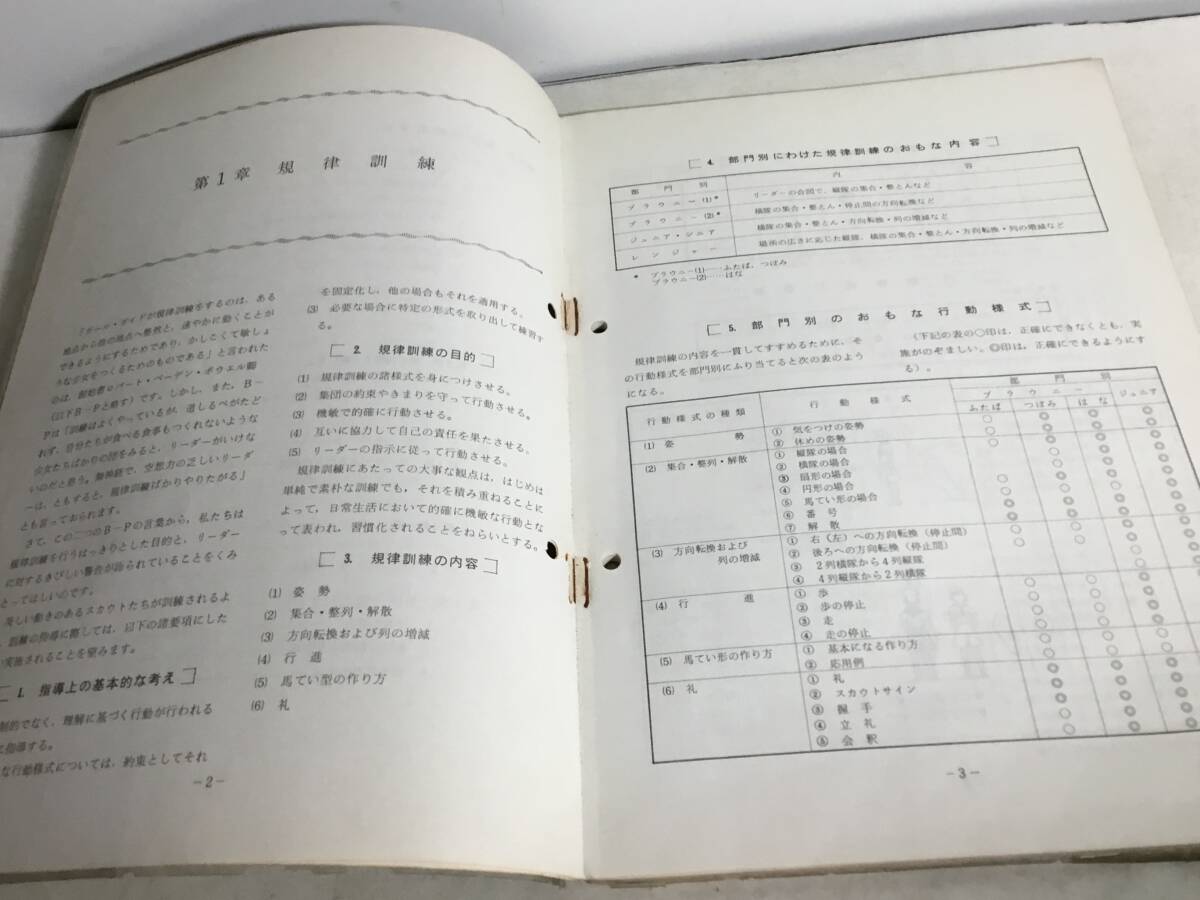 第1章 規律訓練
「ガール・ガイドが規律訓練をするのは、ある
地点から他の地点へ整然と、速やかに動くことが
できるようにするためであり、かしこくて敏しょ
うな少女をつくるためのものである」と言われた
のは、創始者ロバート・ベーデン・ポウエル卿
(以下B-Pと略す)です。しかし、また、B-
Pは「訓練はよくやっているが、道しるべがたど
れず、自分たちが食べる食事もつくれないような
少女たちばかりの団をみると、リーダーがいけな
いのだと思う。無神経で、空想力の乏しいリーダ
ーは、ともすると、規律訓練ばかりやりたがる」
とも言っておられます。
さて、この二つのB-Pの言葉から、私たちは
規律訓練を行うはっきりとした目的と、リーダー
に対するきびしい警告が語られていることをくみ
とってほしいのです。
美しい動きのあるスカウトたちが訓練されるよ
、訓練の指導に際しては、以下の諸要項にした
い実施されることを望みます。
1. 指導上の基本的な考え
制的でなく、理解に基づく行動が行われる
に指導する。
な行動様式については、約束としてそれ
を固定化し、他の場合もそれを適用する。
(3) 必要な場合に特定の形式を取り出して練習す
る。
2. 規律訓練の目的
(1) 規律訓練の諸様式を身につけさせる。
(2) 集団の約束やきまりを守って行動させる。
(3) 機敏で的確に行動させる。
(4) 互いに協力して自己の責任を果たさせる。
(5) リーダーの指示に従って行動させる。
規律訓練にあたっての大事な観点は、はじめは
単純で素朴な訓練でも、それを積み重ねることに
よって、日常生活において的確に機敏な行動とな
って表われ、習慣化されることをねらいとする。
3. 規律訓練の内容
(1) 姿勢
(2) 集合・整列・解散
(3) 方向転換および列の増減
(4) 行進
(5) 馬てい型の作り方
(6) 礼
-2-
4. 部門別にわけた規律訓練のおもな内容
部門別 内容
ブラウニー(1)* リーダーの合図で、縦隊の集合・整とんなど
ブラウニー(2)* 横隊の集合・整とん・停止間の方向転換など
ジュニア・シニア 横隊の集合・整とん・方向転換・列の増減など
レンジャー 場所の広さに応じた縦隊、横隊の集合・整とん・方向転換・列の増減など
* ブラウニー(1)……ふたば、つぼみ
ブラウニー(2)……はな
5. 部門別のおもな行動様式
規律訓練の内容を一貫してすすめるために、そ
の行動様式を部門別にふり当てると次の表のよう
になる。
(下記の表の○印は、正確にできなくとも、実
施がのぞましい。◎印は、正確にできるようにす
る)。
行動様式の種類 行動様式 部門別
ブラウニー ジュニア
ふたば つぼみ はな
(1) 姿勢 ① 気をつけの姿勢
② 休めの姿勢
(2) 集合・整列・解散 ① 縦隊の場合
② 横隊の場合
③ 扇形の場合
④ 円形の場合
⑤ 馬てい形の場合
⑥ 番号
⑦ 解散
(3) 方向転換および ① 右(左)への方向転換(停止間)
列の増減 ② 後ろへの方向転換(停止間)
③ 2列横隊から4列縦隊
④ 4列縦隊から2列横隊
(4) 行進 ① 歩
② 歩の停止
③ 走
④ 走の停止
(5) 馬てい形の作り方 ① 基本になる作り方
② 応用例
(6) 礼 ① 礼
② スカウトサイン
③ 握手
④ 立礼
⑤ 会釈
-3-